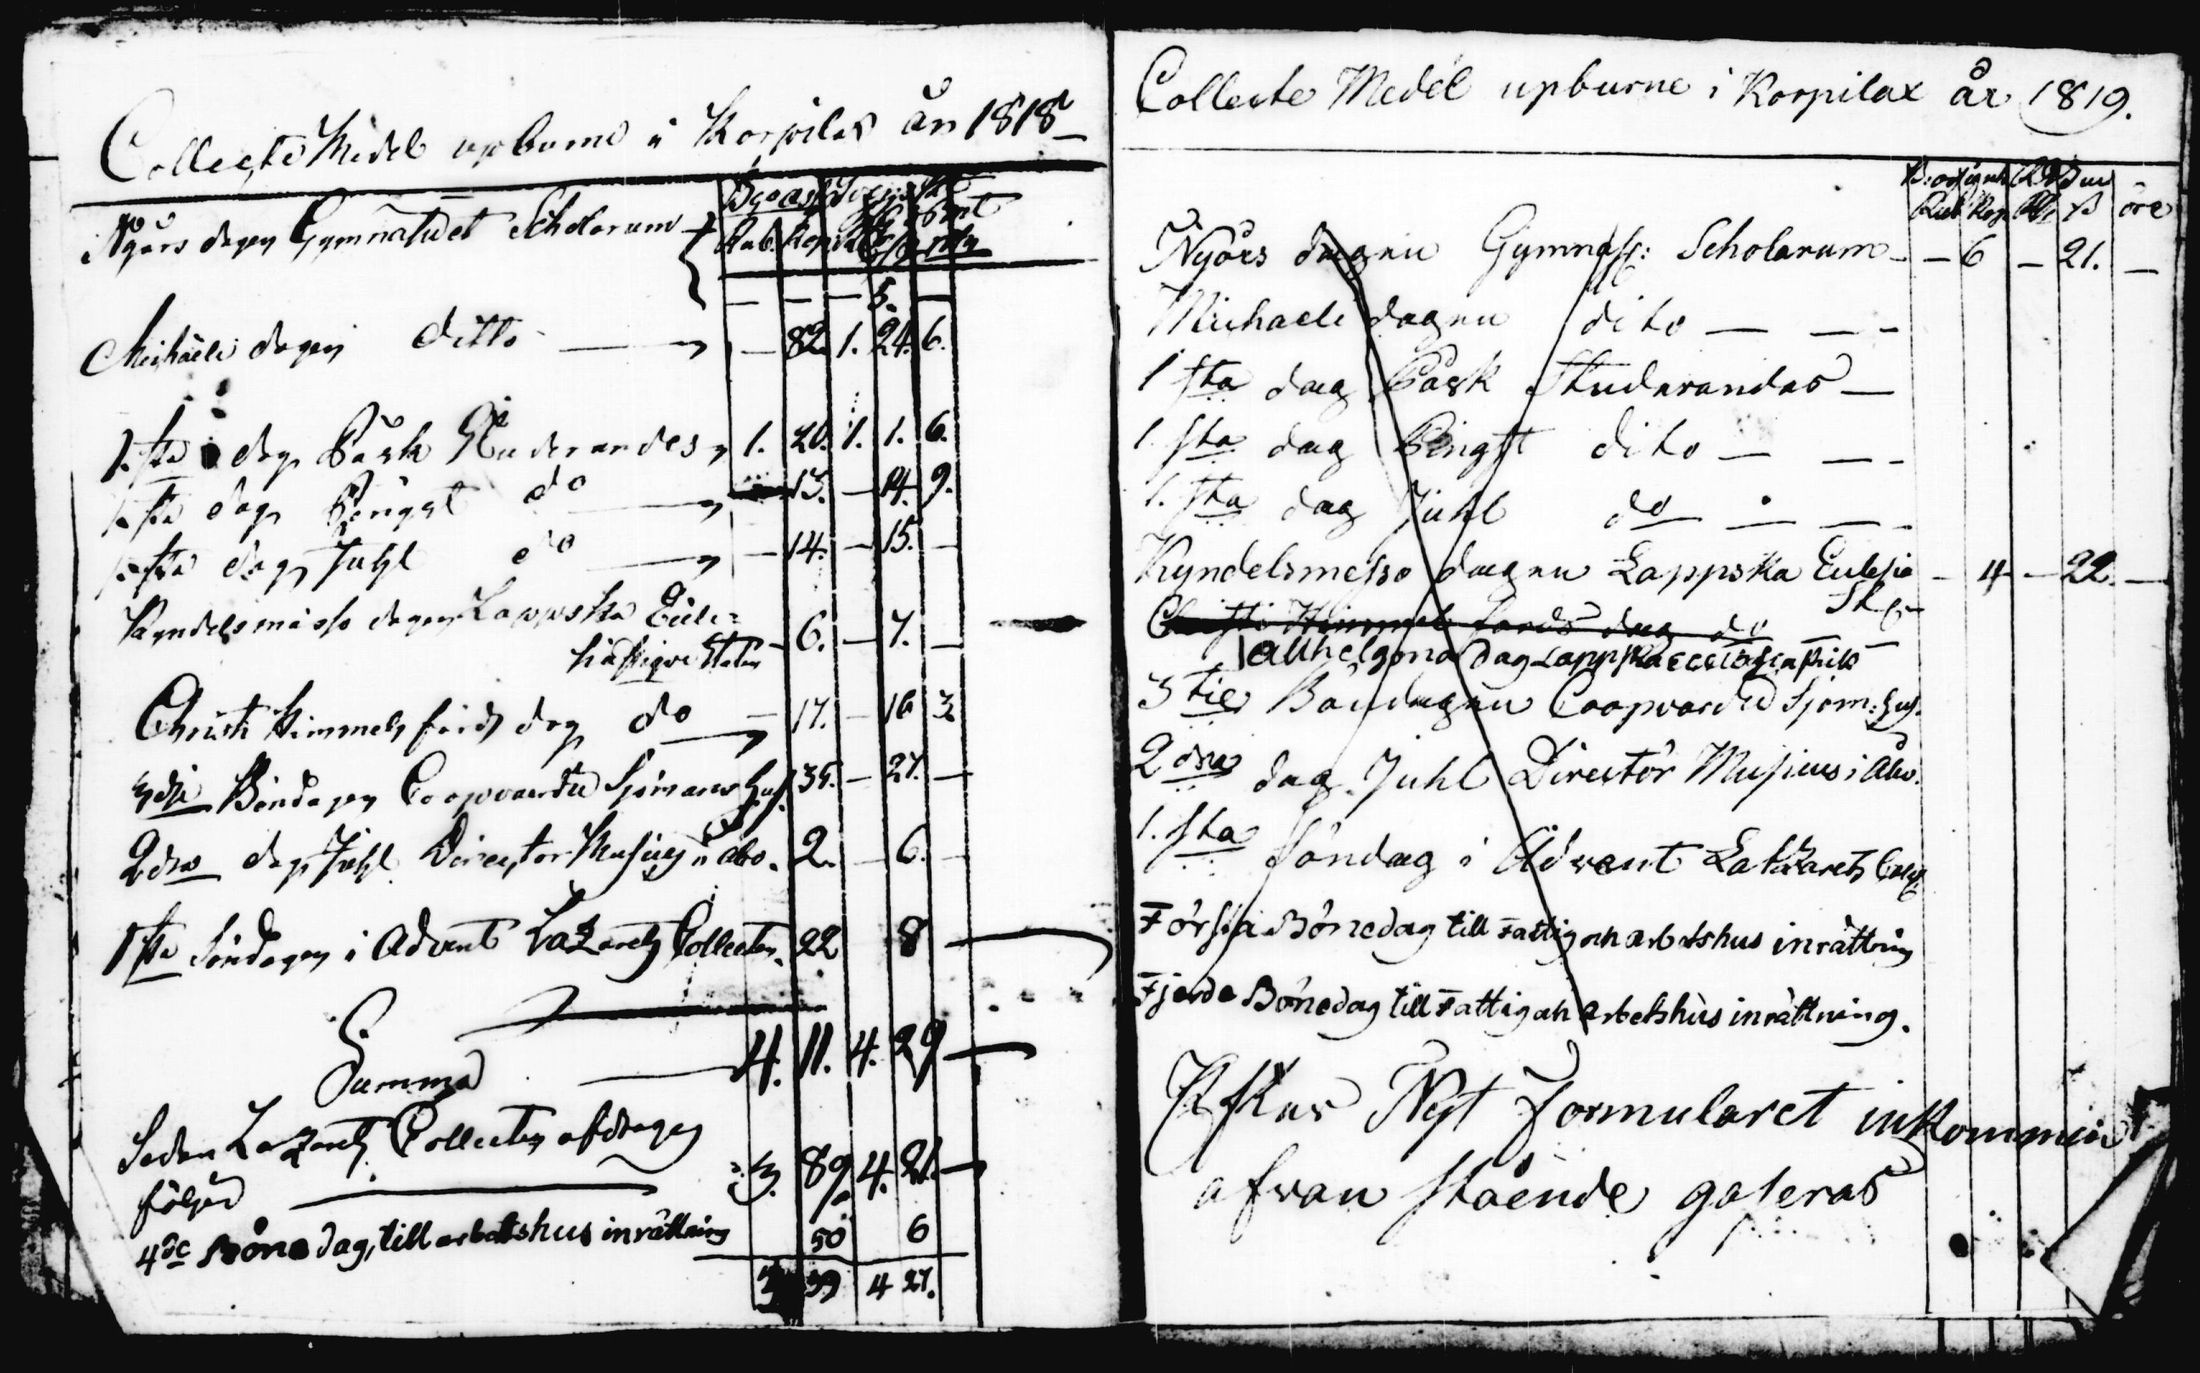 Collecte Medel upburne i Korpilax år 1818
Rub. Kop.
Nyårs dagen Gymnasii et Scholarum
— — — 5. —
Michaeli dagen ditto — — 82. 1. 24. 6.
1. sta dag Påsk Studerandes 1. 20. 1. 1. 6.
1. sta dag Pingst do — 13. — 14. 9.
1. sta dag Juhl do — — 14. — 15. —
Kyndelsmässo dagen Lappska Eccle=
— 6. — 7. —
Christi Himmelsfärds dag do — 17. — 16 3
3dje Böndagen Coopvaerdie Sjömans Hus. 35. — 27. —
2dra dag Juhl Director Musices i Åbo. 2. — 6. —
1sta Söndagen i Advent Lazarets Collecten. 22 8 —
Summa — 4. 11. 4. 29 —
Sedan Lazarets Collecten afdragen
följer — 3. 89 4. 21. —
4de Böne dag, till arbetshus inrättning 50 6
39 4 27.
Collecte Medel upburne i Korpilax år 1819.
Rub Kop ß öre
Nyårs dagen Gymnas: Scholarum — — 6 — 21. —
Michaeli dagen dito — — -
1 sta dag Påsk Studerandes —
1 sta dag Pingst dito — — -
1. sta dag Juhl do — — -
Kyndelsmesso dagen Lappska Eclesia — 4 — 22. —
Christi Himmels färds dag do
Allhelgona dag Lappska
3 tie Böndagen Coopvardie Sjöm: Hus.
2 dra dag Juhl Director Musices i Åbo.
1. sta Söndag i Advent Latzarets
Första Bönedag till Fattig och arbetshus inrättning
Fjerde Bönedag till Fattig och arbetshus inrättning.
Efter Nyt Formularet inkommin
afvan stående gaseras